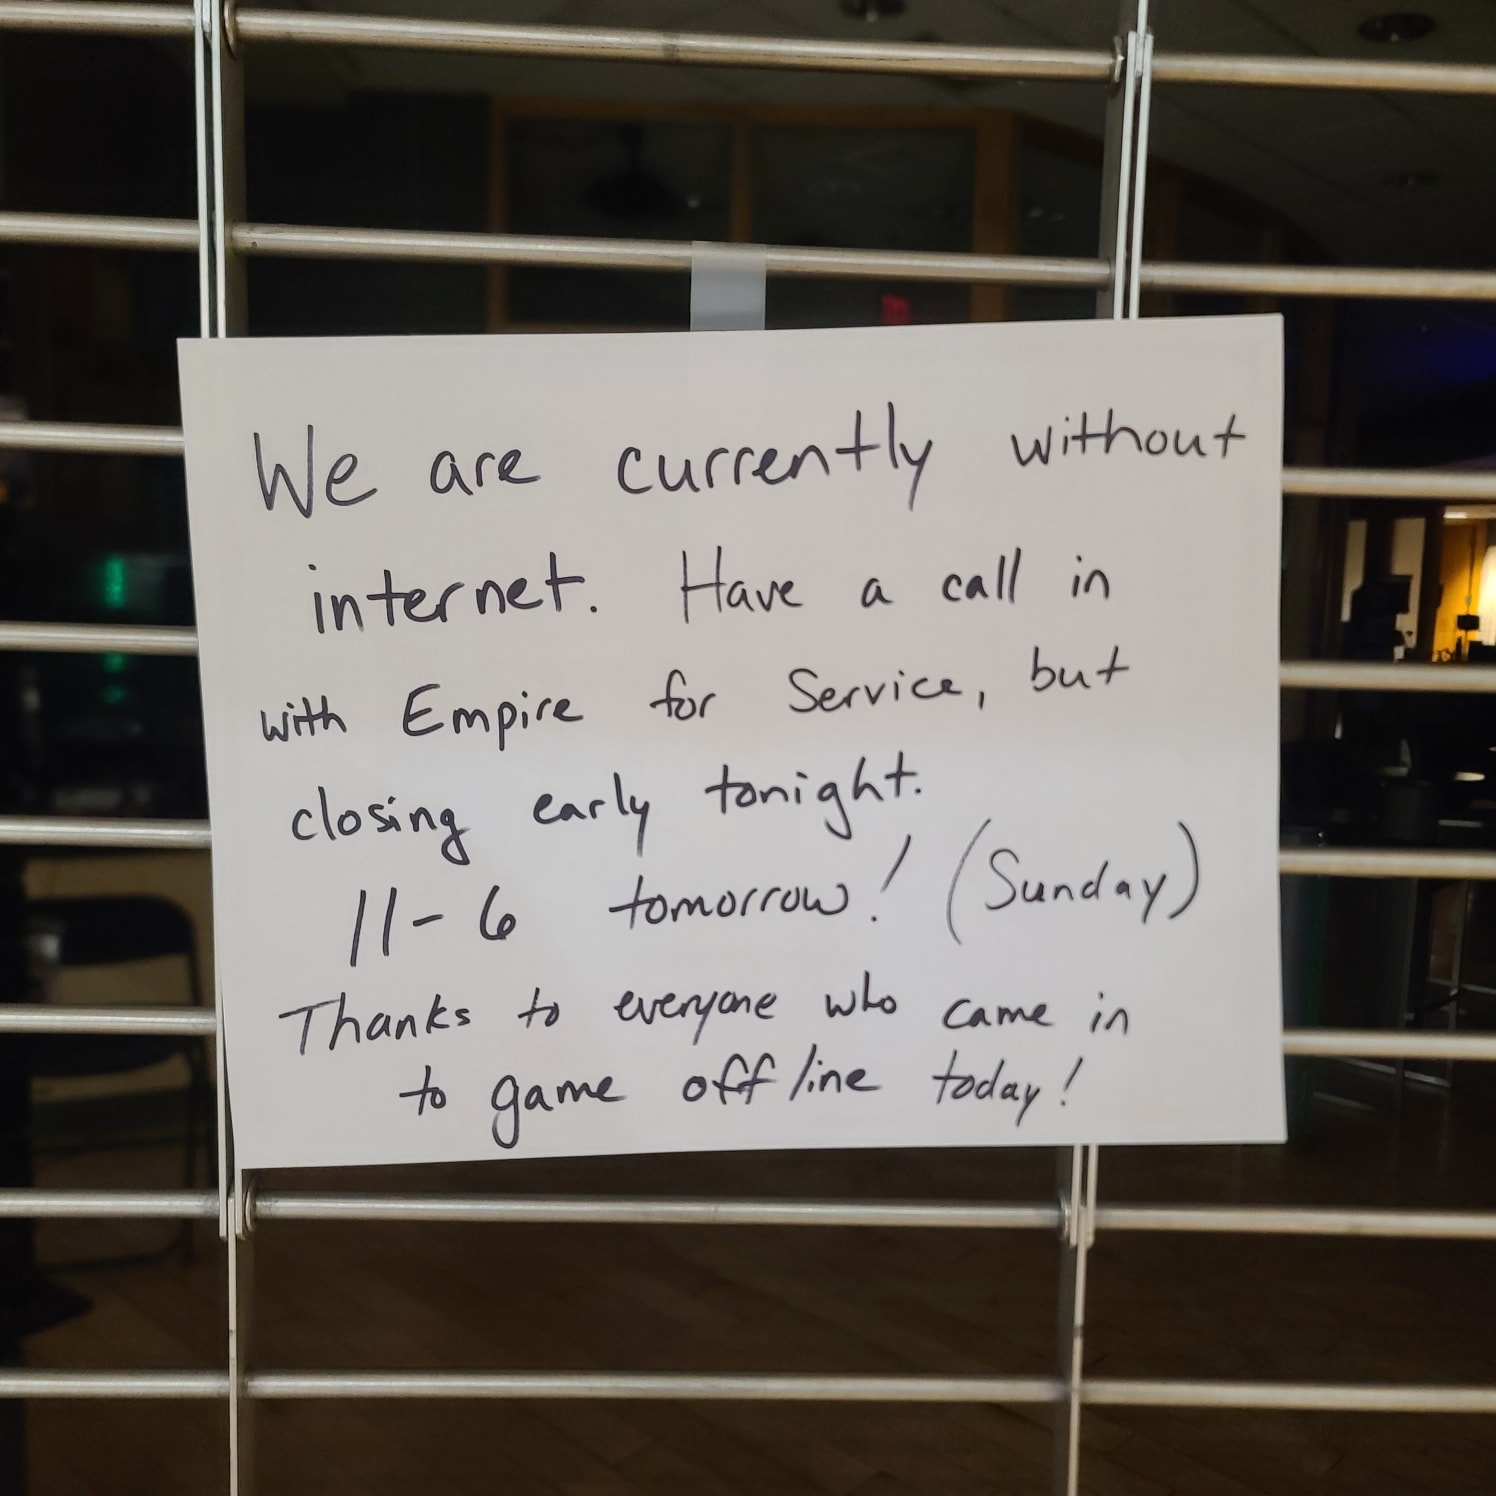 We are currently without
internet. Have a call in
with Empire for Service, but
closing early tonight.
11-6 tomorrow! (Sunday)
Thanks to everyone who came in
to game offline today!